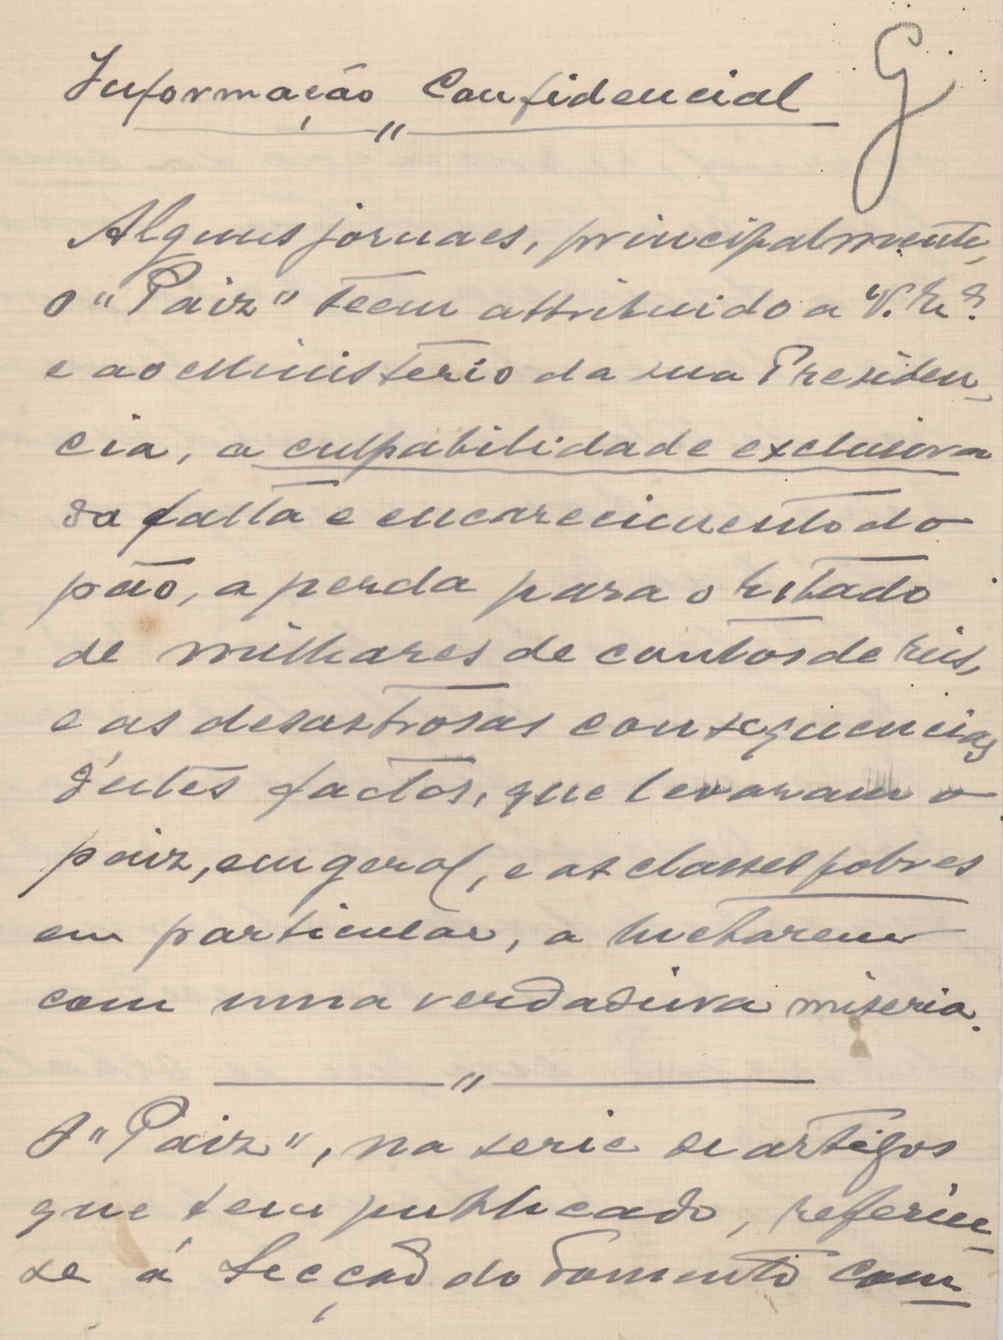 G
Informação Confidencial
Alguns jornaes, principalmente,
o "Paiz" teem attribuido a V. Ex.ª
e ao Ministerio da sua Presiden-
cia, a culpabilidade exclusiva
da falta e encarecimento do
pão, a perda para o Estado
de milhares de contos de reis,
e as desastrosas consequencias
d'estes factos, que levaram o
paiz, em geral, e as classes pobres
em particular, a luctarem
com uma verdadeira miseria.
O "Paiz", na serie de artigos
que tem publicado, referiu-
se á Secção do Fomento Com-